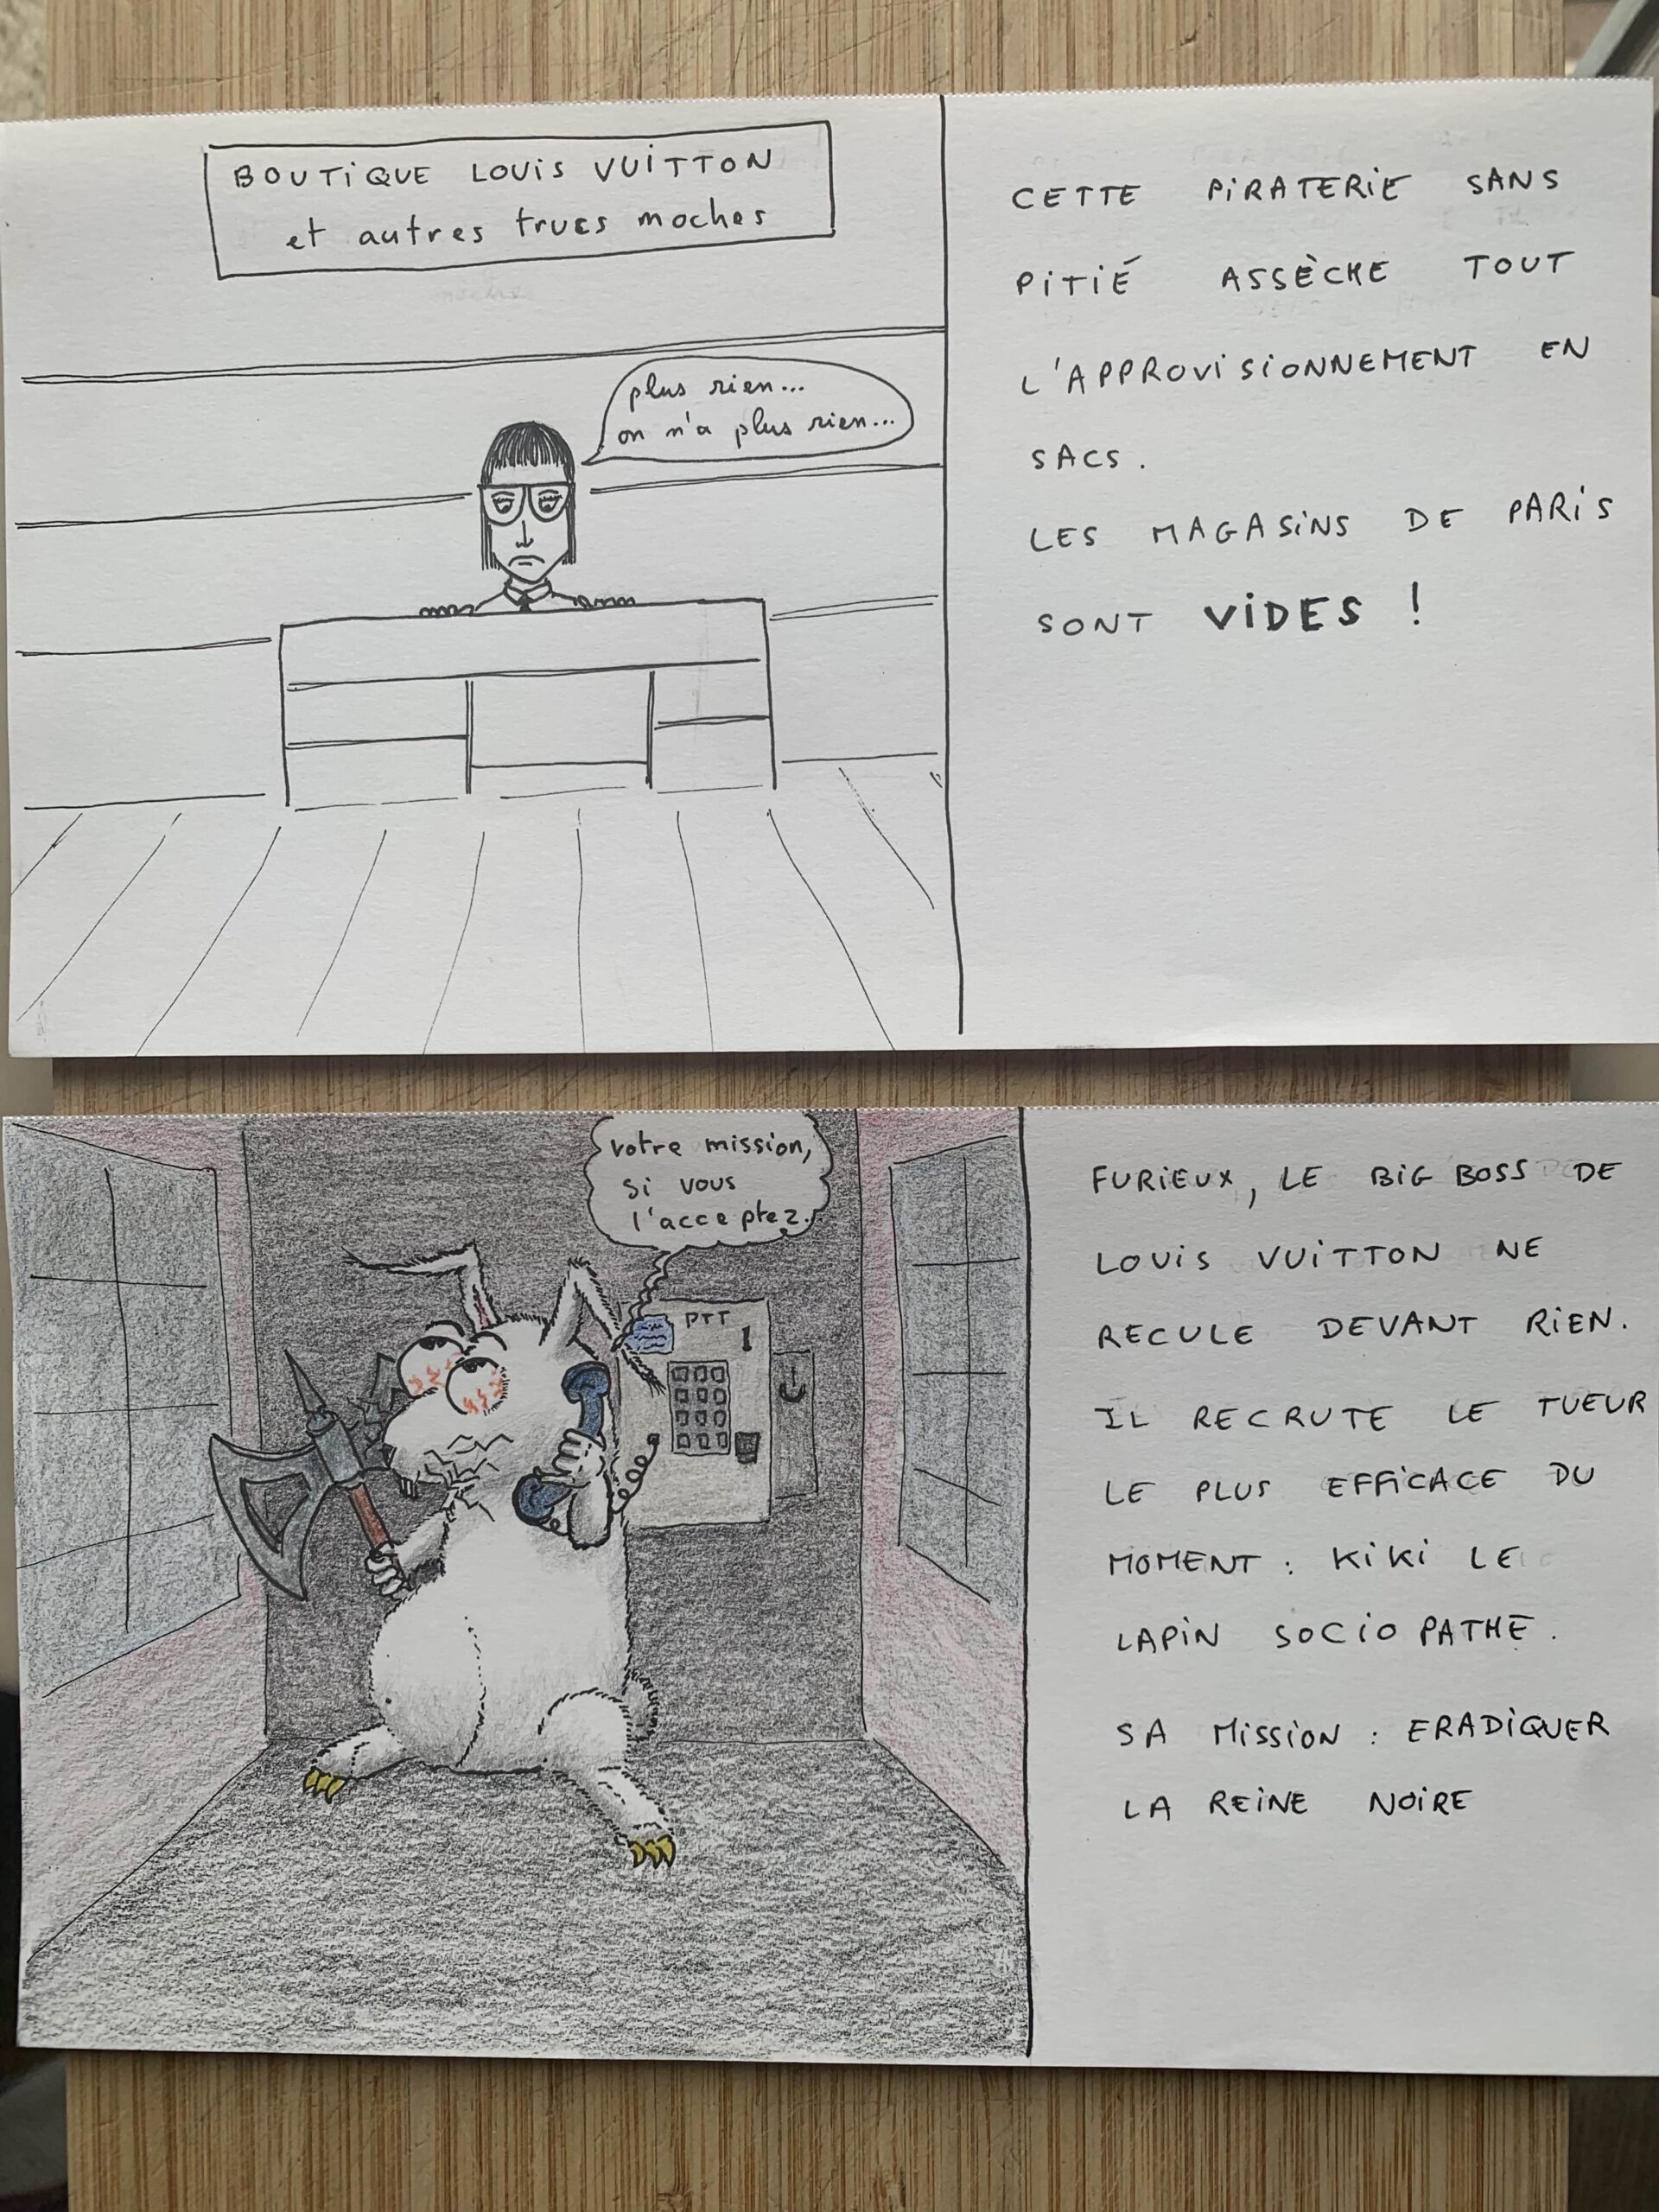 BOUTIQUE LOUIS VUITTON
et autres trucs moches
plus rien...
on n'a plus rien...
CETTE PIRATERIE SANS
PITIÉ ASSÈCHE TOUT
L'APPROVISIONNEMENT EN
SACS.
LES MAGASINS DE PARIS
SONT VIDES !
votre mission,
si vous
l'acceptez.
PTT
FURIEUX, LE BIG BOSS DE
LOUIS VUITTON NE
RECULE DEVANT RIEN.
IL RECRUTE LE TUEUR
LE PLUS EFFICACE DU
MOMENT : KIKI LE
LAPIN SOCIOPATHE.
SA MISSION : ERADIQUER
LA REINE NOIRE